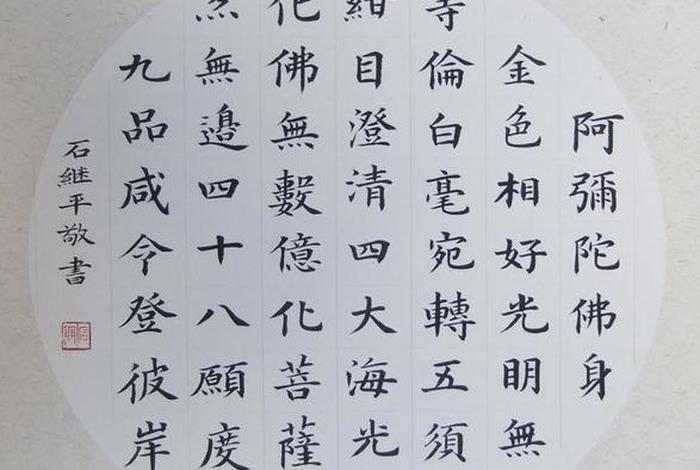 阿彌陀佛身
金色相好光明無
倫白毫宛轉五須
紺目澄清四大海光
化佛無數億化菩薩
無邊四十八願度
九品咸令登彼岸
石継平敬書